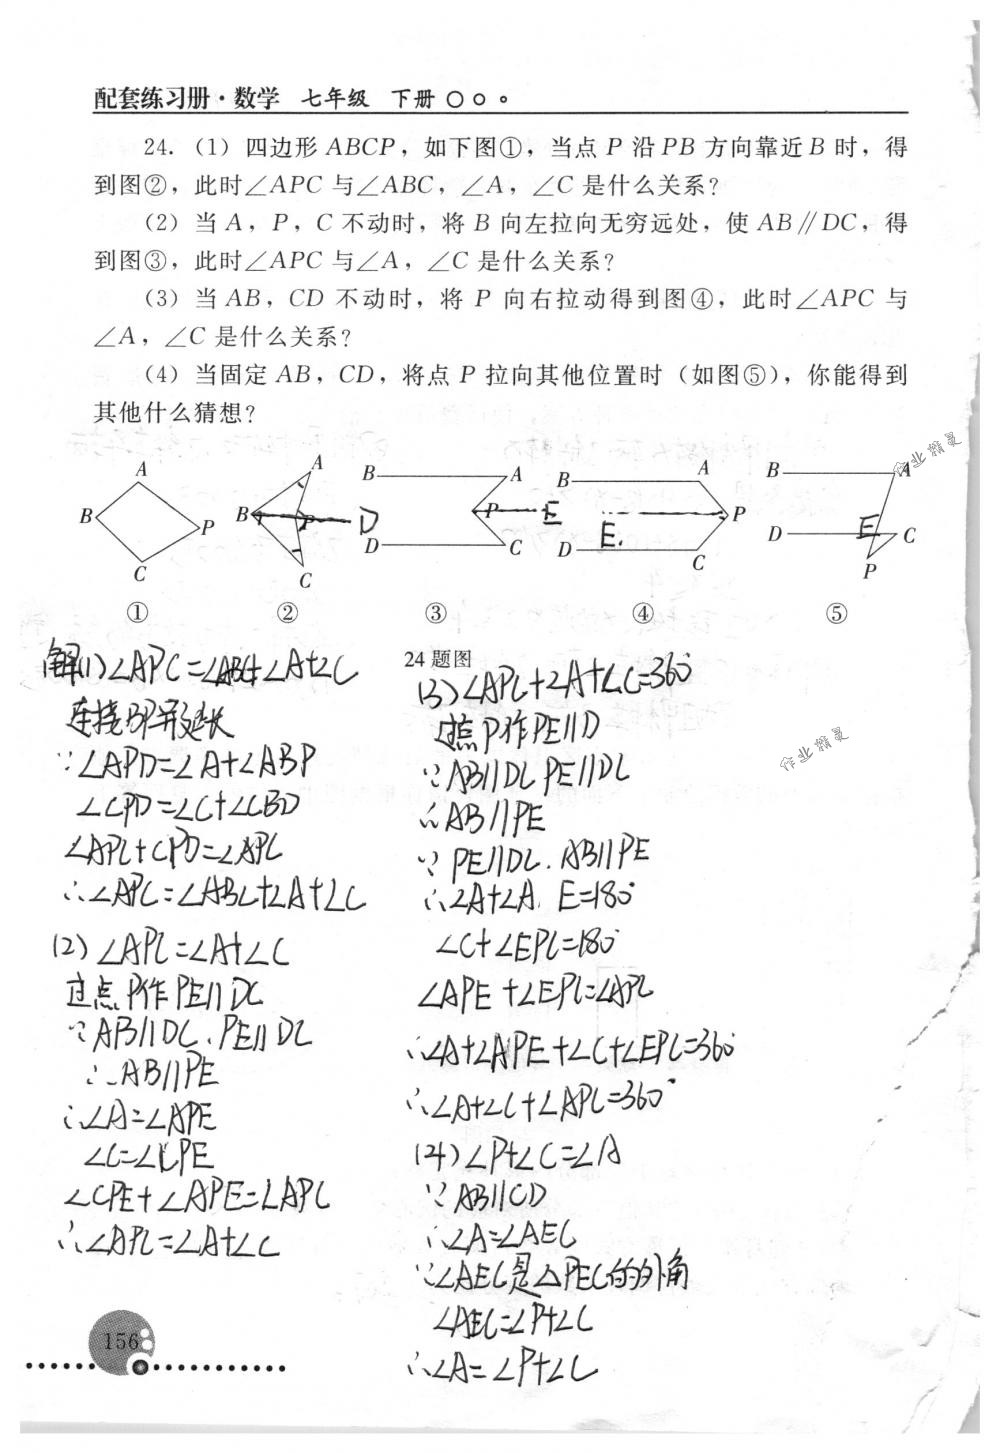 配套练习册·数学 七年级 下册
24. (1) 四边形 ABCP，如下图①，当点 P 沿 PB 方向靠近 B 时，得
到图②，此时∠APC 与∠ABC，∠A，∠C 是什么关系？
(2) 当 A，P，C 不动时，将 B 向左拉向无穷远处，使 AB∥DC，得
到图③，此时∠APC 与∠A，∠C 是什么关系？
(3) 当 AB，CD 不动时，将 P 向右拉动得到图④，此时∠APC 与
∠A，∠C 是什么关系？
(4) 当固定 AB，CD，将点 P 拉向其他位置时（如图⑤），你能得到
其他什么猜想？
A B P C
A B P D C
B A P E D C
B A P E D C
B A D E C P
① ② ③ ④ ⑤
24 题图
解(1)∠APC=∠ABC+∠A+∠C
连接BP并延长
∵∠APD=∠A+∠ABP
∠CPD=∠C+∠CBD
∠APC+CPD=∠APC
∴∠APC=∠ABC+∠A+∠C
(2)∠APC=∠A+∠C
过点P作PE∥DC
∵AB∥DC、PE∥DC
∴AB∥PE
∴∠A=∠APE
∠C=∠CPE
∠CPE+∠APE=∠APC
∴∠APC=∠A+∠C
(3)∠APC+∠A+∠C=360°
过点P作PE∥D
∵AB∥DC PE∥DC
∴AB∥PE
∵PE∥DC.AB∥PE
∴∠A+∠A.E=180°
∠C+∠EPC=180°
∠APE+∠EPC=∠APC
∴∠A+∠APE+∠C+∠EPC=360°
∴∠A+∠C+∠APC=360°
(24)∠P+∠C=∠A
∵AB∥CD
∴∠A=∠AEC
∵∠AEC是△PEC的外角
∠AEC=∠P+∠C
∴∠A=∠P+∠C
156
作业精灵
作业精灵